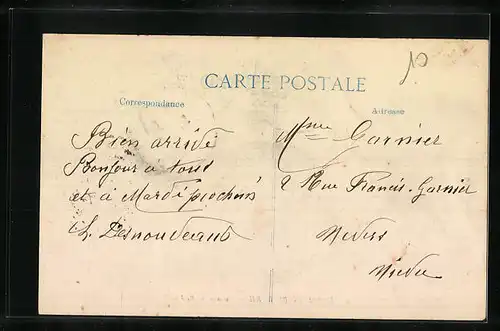 10
CARTE POSTALE
Correspondance
Adresse
Bien arrivé
Bonjour a tous
et à Mardi prochain
Mme Garnier
2 Rue Francis-Garnier
Nevers
Nièvre